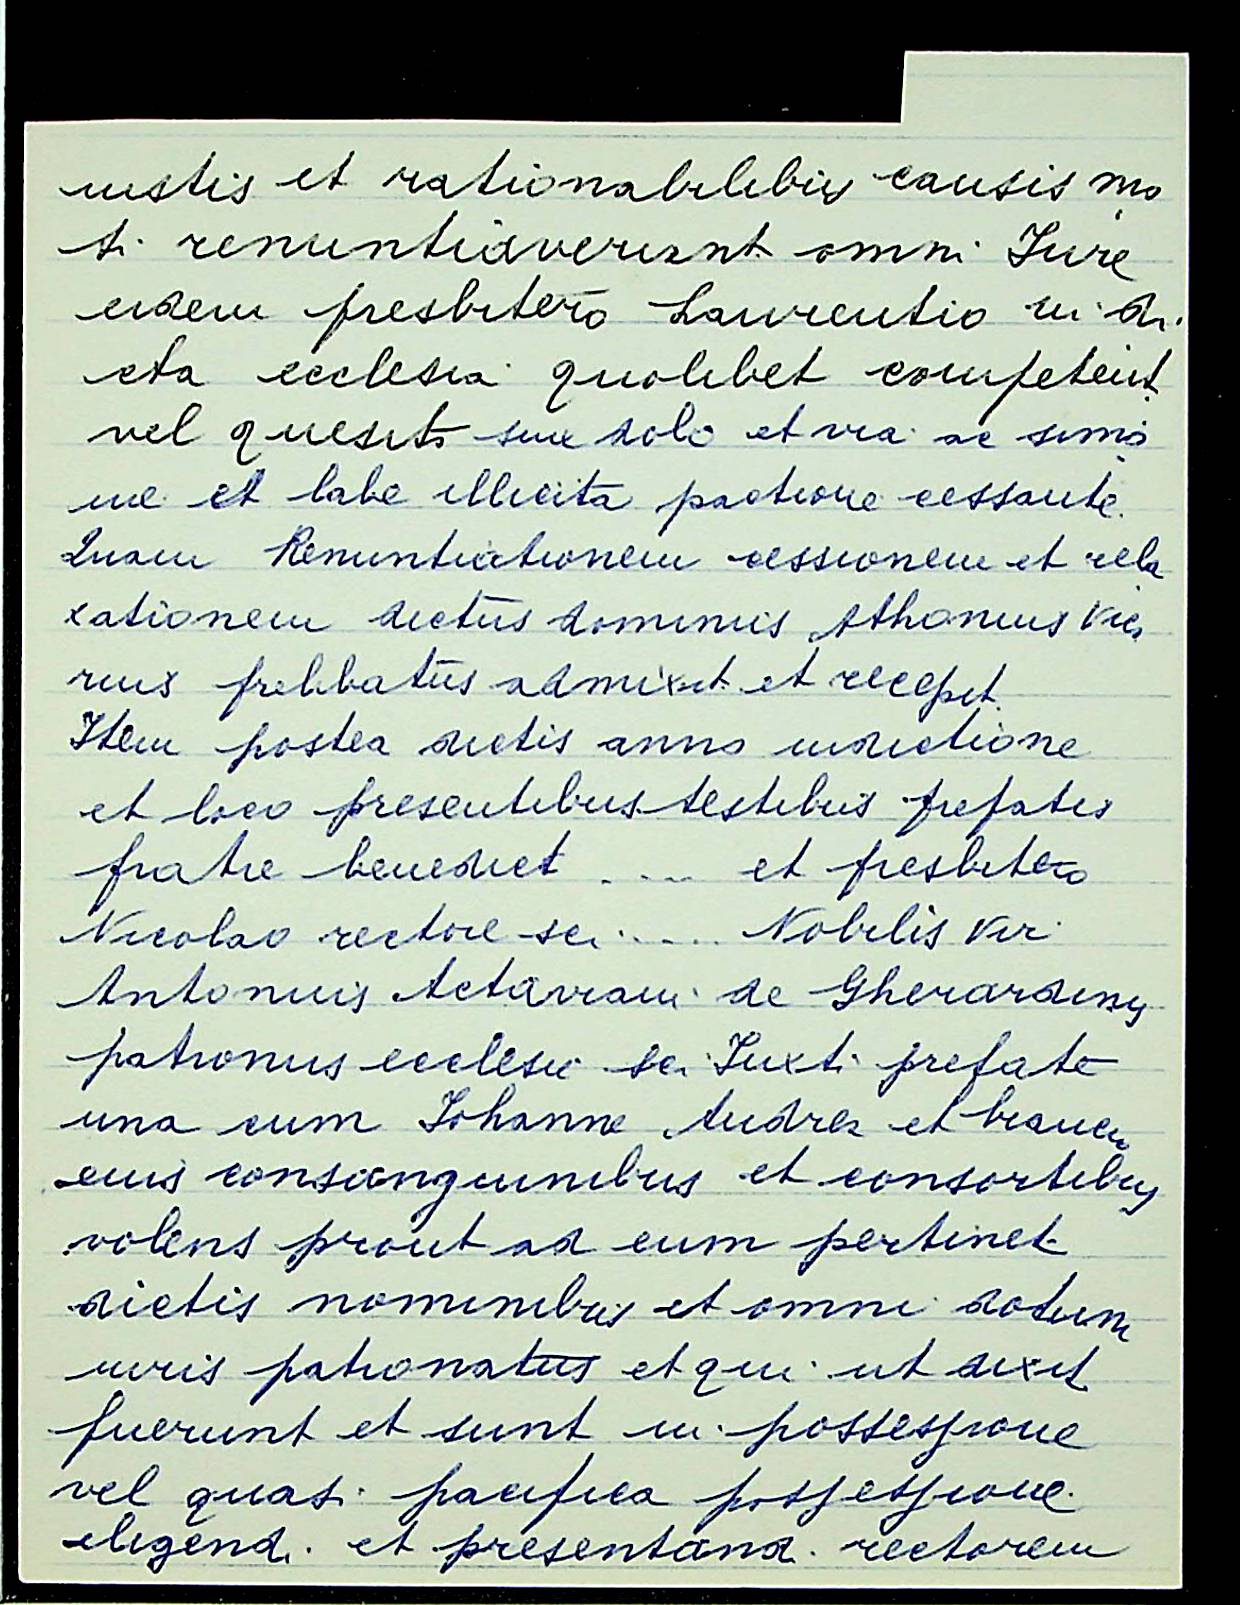 iustis et rationabilibus causis mo
ti renuntiaverunt omni Iure
eidem presbitero Laurentio in di
cta ecclesia quolibet competent
vel quesito sine dolo et via ac simo
nie et labe illicita pactione cessante.
Quam Renuntiationem cessionem et rela
xationem dictus dominus Athonius Vica
rius prelibatus admixit et recepit.
Item postea dictis anno indictione
et loco presentibus testibus prefatis
fratre benedict .... et presbitero
Nicolao rectore sci ..... Nobilis Vir
Antonius Actaviani de Gherardinis
patronus ecclesie sci Iuxti prefate
una cum Iohanne Andrea et
suis consanguineibus et consortibus
volens prout ad eum pertinet
dictis nominibus et omni
iuris patronatus et qui ut dixit
fuerunt et sunt in possessione
vel quasi pacifica possessione
eligendi et presentandi rectorem